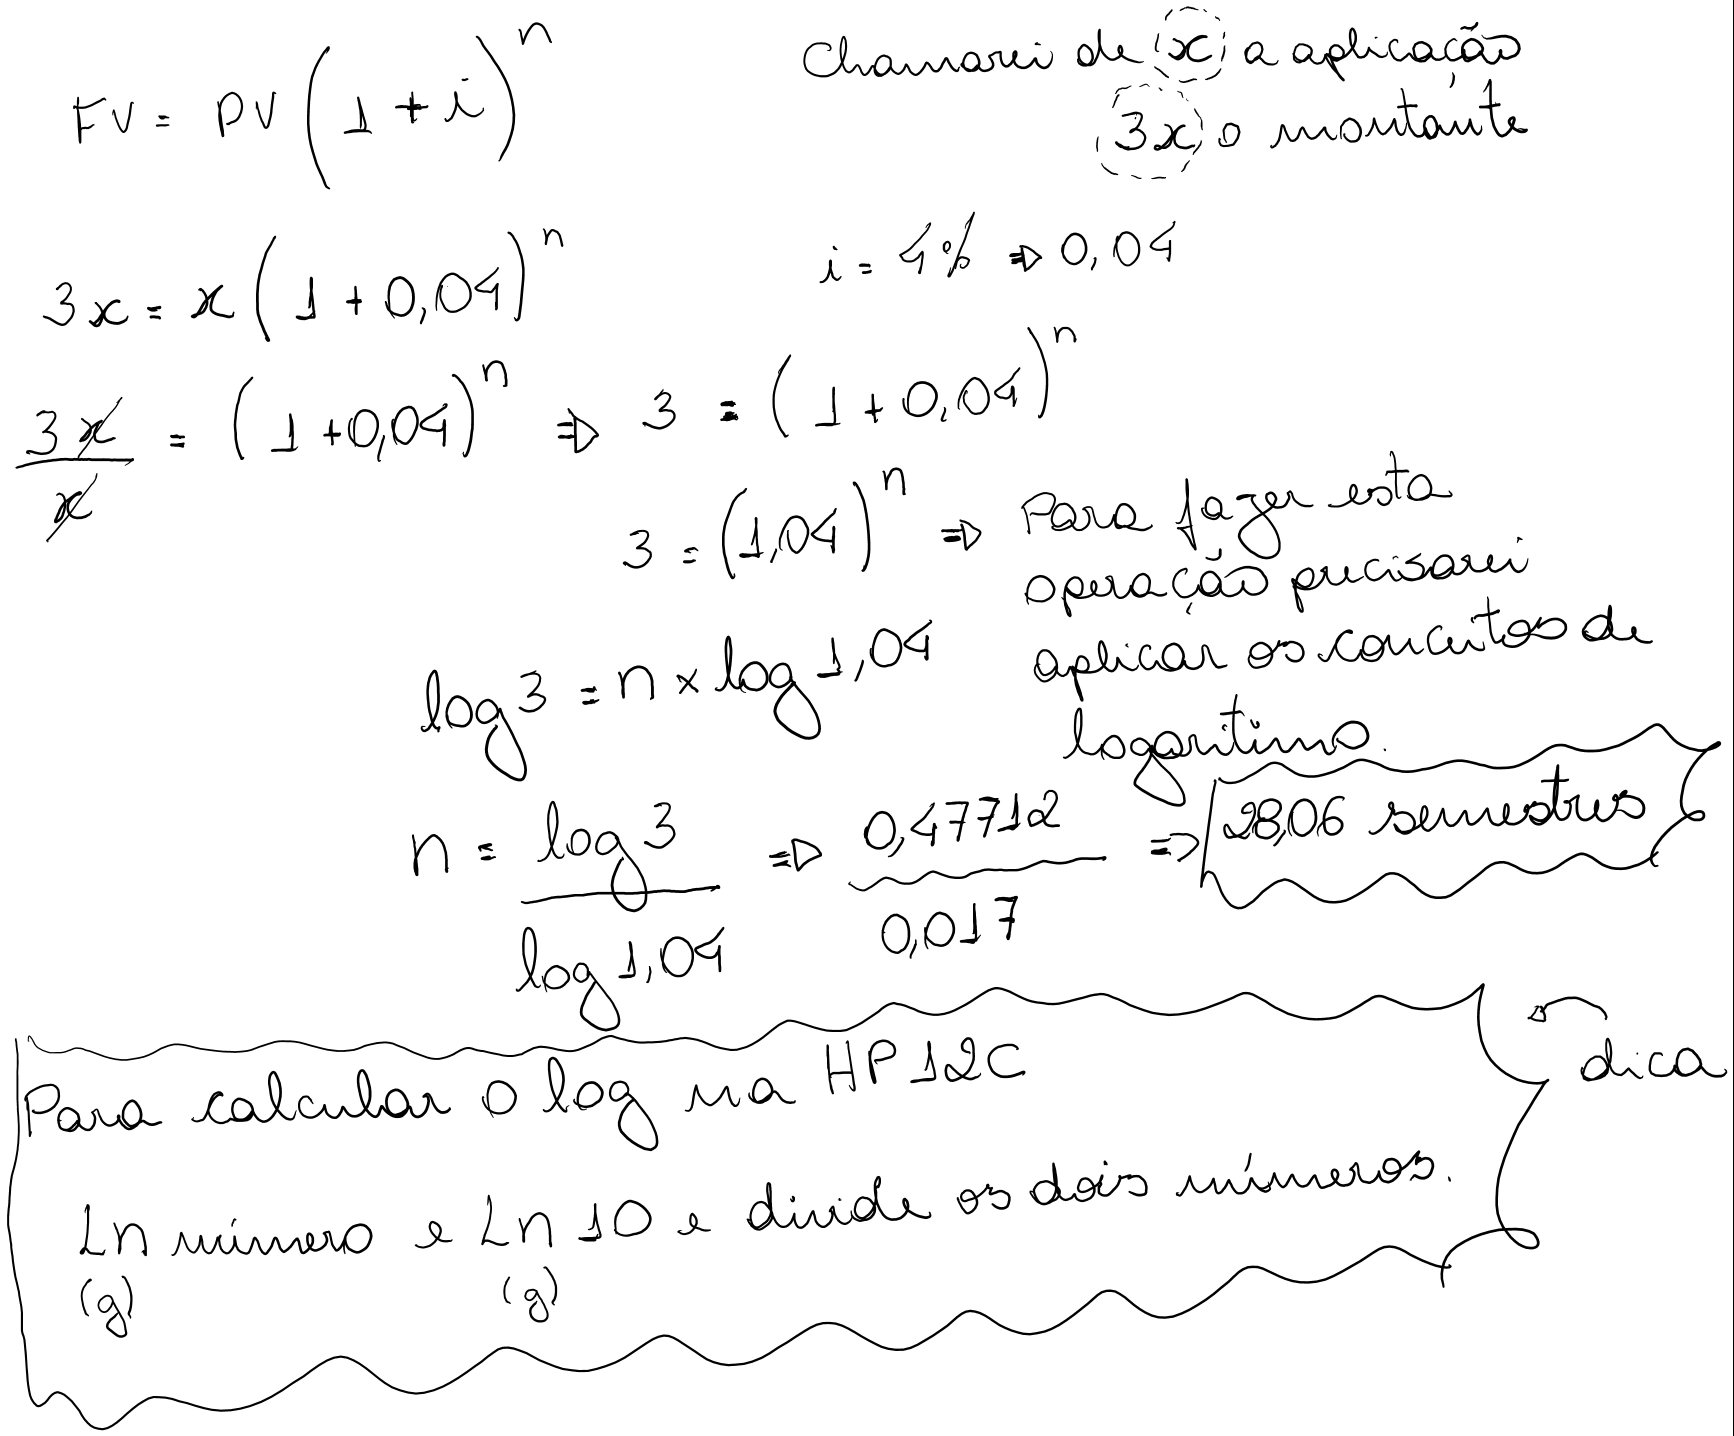 FV = PV (1 + i)^n
Chamarei de x a aplicação
3x o montante
3x = x (1 + 0,04)^n
i = 4% ⇒ 0,04
3x/x = (1 + 0,04)^n ⇒ 3 = (1 + 0,04)^n
3 = (1,04)^n ⇒ Para fazer esta
operação precisarei
aplicar os conceitos de
logaritimo.
log 3 = n x log 1,04
n = log 3 / log 1,04 ⇒ 0,47712 / 0,017 ⇒ 28,06 semestres
dica
Para calcular o log na HP12C
Ln número e Ln 10 e divide os dois números.
(g) (g)